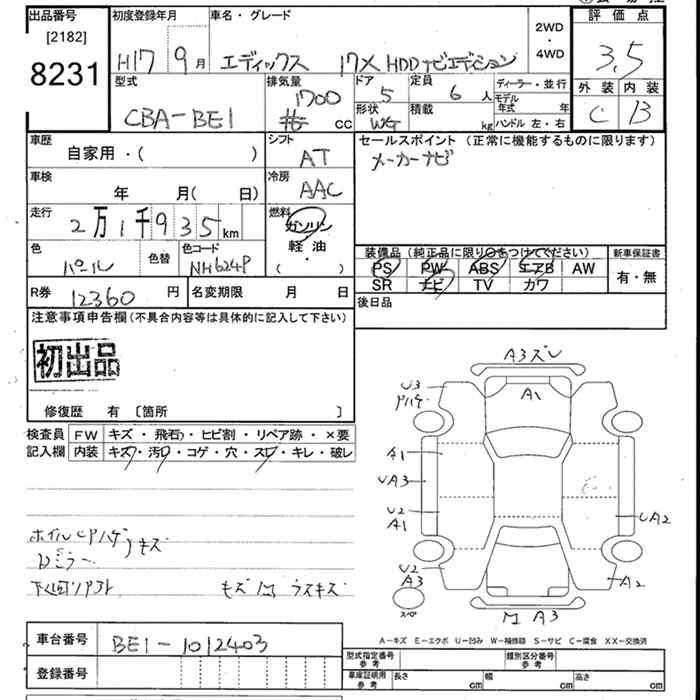 出品番号 初度登録年月 車名・グレード 評価点
[2182]
8231
H17 9月 エディックス 17X HDDナビエディション 2WD・4WD 3.5
型式 排気量 ドア 定員 ディーラー・並行 外装 内装
CBA-BE1 1700 CC 5 6人 モデル年式 年 C B
形状 WG 積載 kg ハンドル 左・右
車歴 シフト セールスポイント(正常に機能するものに限ります)
自家用・( ) AT メーカーナビ
車検 冷房
年 月( 日) AAC
走行 燃料
2万1千935km ガソリン
軽油
( ・ )
色 色替 色コード 装備品(純正品に限り○をつけてください) 新車保証書
パール NH624P PS PW ABS エアB AW 有・無
SR ナビ TV カワ
R券 12360円 名変期限 月 日 後日品
注意事項申告欄(不具合内容等は具体的に記入して下さい)
初出品
修復歴 有 〔箇所 〕
検査員 FW キズ・飛石・ヒビ割・リペア跡・×要
記入欄 内装 キズ・汚レ・コゲ・穴・スレ・キレ・破レ
A3ズレ
U3 A1
A1
UA3
U2 UA2
A1
U2
A3 A2
スペ
A3
ミラー キズ
A-キズ E-エクボ U-凹み W-補修跡 S-サビ C-腐食 XX-交換済
車台番号 BE1-1012403
登録番号
型式指定番号 参考 類別区分番号 参考
車庫証明用 参考 長さ cm 幅 cm 高さ cm